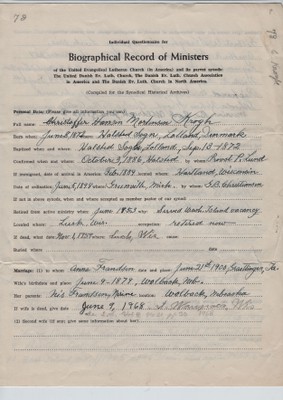 78
Individual Questionnaire for
Biographical Record of Ministers
of the United Evangelical Lutheran Church (in America) and its parent synods:
The United Danish Ev. Luth. Church, The Danish Ev. Luth. Church Association
in America and The Danish Ev. Luth. Church in North America.
(Compiled for the Synodical Historical Archives)
Personal Data: (Please give all information you can)
Full name: Christoffer Hansen Mortensen Krogh
Born when: June 8, 1872 where: Halsted Sogn, Lolland, Denmark
Baptized when and where: Halsted Sogn, Lolland, Sep. 1872
Confirmed when and where: October 3, 1886 Halsted by whom: Provst P. Lund
If immigrant, date of arrival in America: Feb. 1894 located where: Hartland, Wisconsin
Date of ordination: June 5, 1898 where: Greenville, Mich. by whom: G.B. Christiansen
If not in above synods, when and where accepted as member of pastor of our synod:
Retired from active ministry when: June 1953 Served Wash. Island vacancy
Located where: Luck, Wis. occupation: retired now
If dead, what date: Nov 1, 1958 where: Luck, Wis cause:
Buried where date
Marriage: (1) to whom: Anna Frandsen date and place: June 21st 1900, Graettinger, Ia.
Wife's birthdate and place: June 9 - 1879, Wolback, Neb.
Her parents: Nis Frandsen, Marine location: Wolback, Nebraska
If wife is dead, give date June 9, 1968
(2) Second wife (if any; give same information about her)